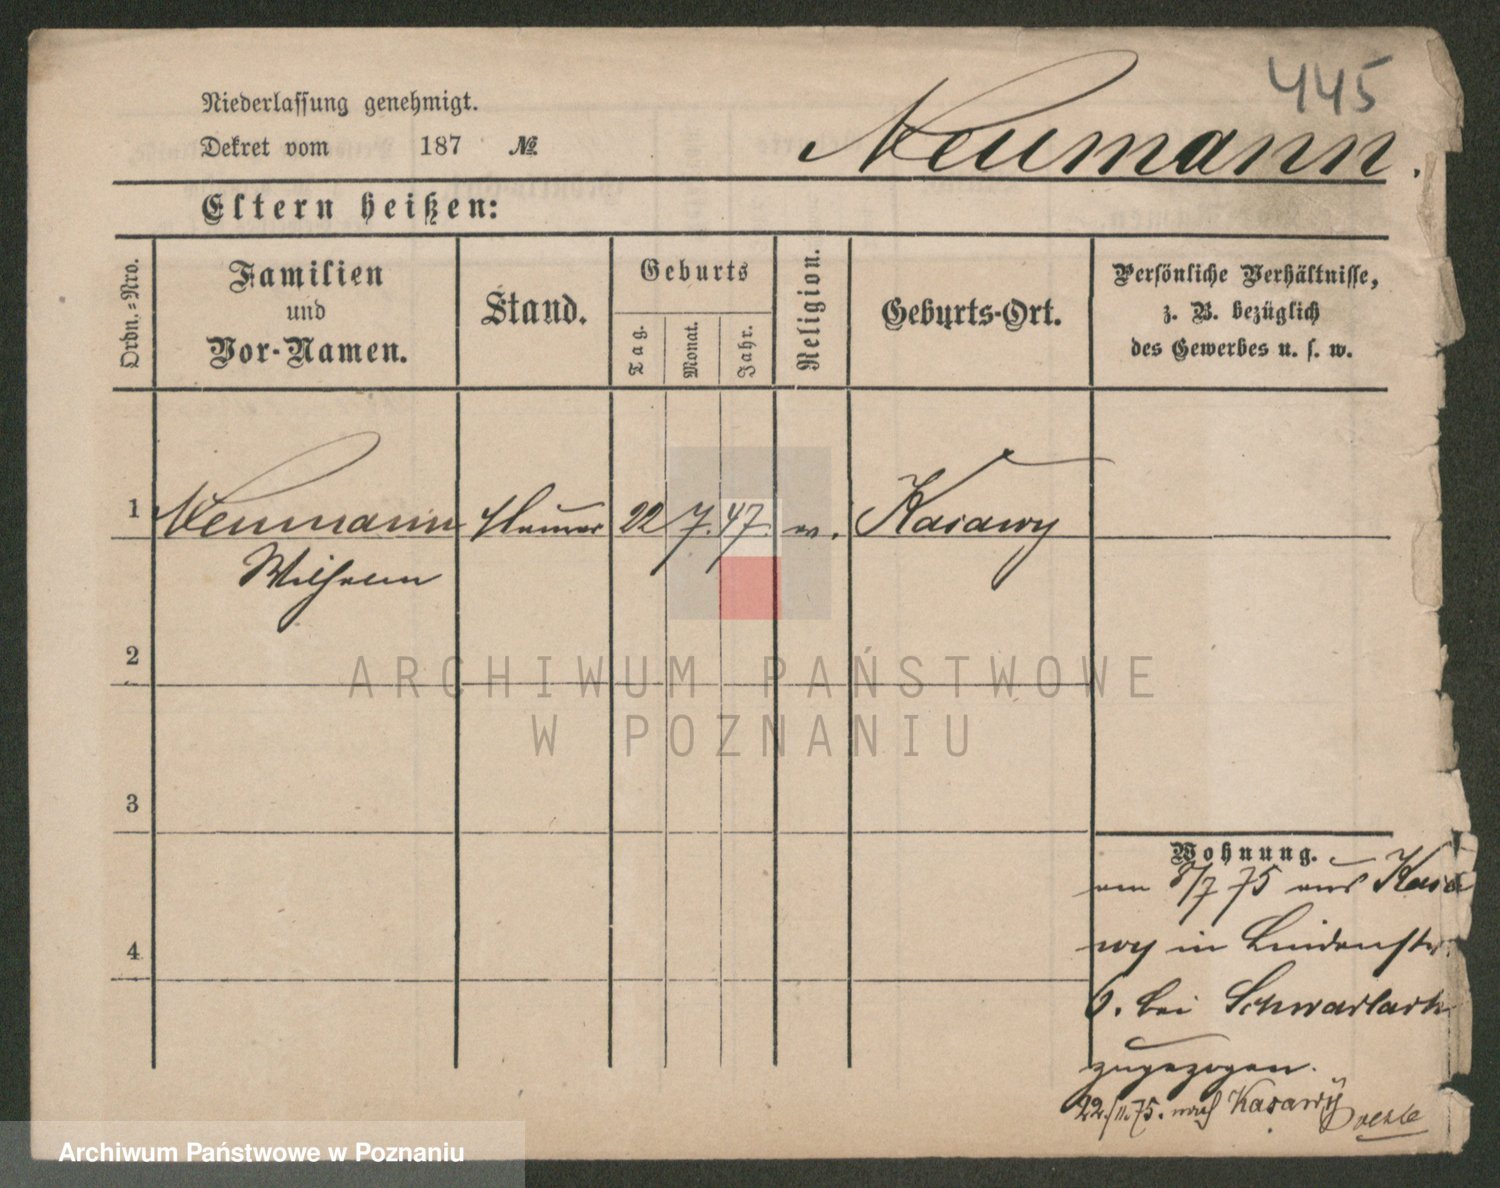 445
Niederlassung genehmigt.
Dekret vom 187 №
Neumann.
Eltern heißen:
Ordn.-Nro.
Familien
und
Vor-Namen.
Stand.
Geburts
Tag.
Monat.
Jahr.
Religion.
Geburts-Ort.
Persönliche Verhältnisse,
z. B. bezüglich
des Gewerbes u. s. w.
1 Neumann 22 7. 47. Kasawy
Wilhelm
2
ARCHIWUM PAŃSTWOWE
W POZNANIU
3
Wohnung.
am 8/7 75 aus Kasa
4
wy in Lindenstr
6. bei
zugezogen.
22./11.75. nach Kasawy
Archiwum Państwowe w Poznaniu